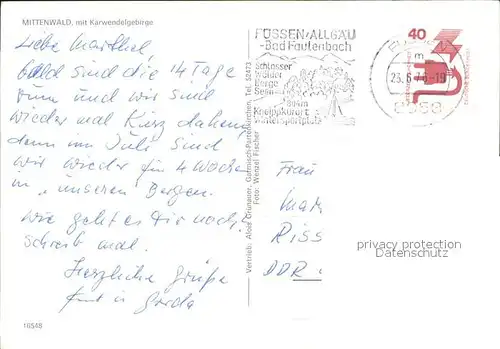 MITTENWALD, mit Karwendelgebirge
Liebe
bald sind die 14 Tage
rum und wir sind
wieder mal kurz daheim
denn im Juli sind
wir wieder für 4 Wochen
in "unseren Bergen.
Wie geht es Dir noch,
schreib mal.
Herzliche Grüße
16548
Vertrieb: Alois Grunauer, Garmisch-Partenkirchen, Tel. 52473
Foto: Wenzel Fischer
FÜSSEN/ALLGÄU
-Bad Faulenbach
Schlösser
Wälder
Berge
Seen
Kneippkurort
Wintersportplatz
40
8958
Frau
Riss
DDR
privacy protection
Datenschutz